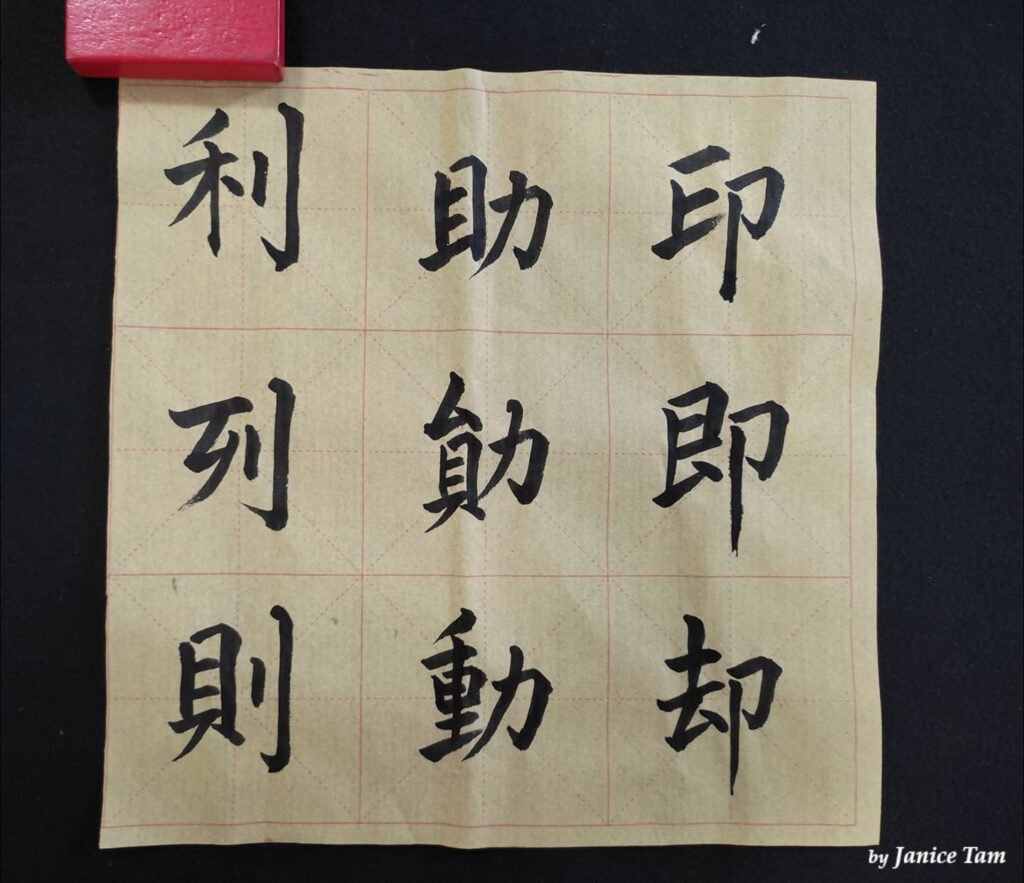 印即却
助勛動
利列則
by Janice Tam